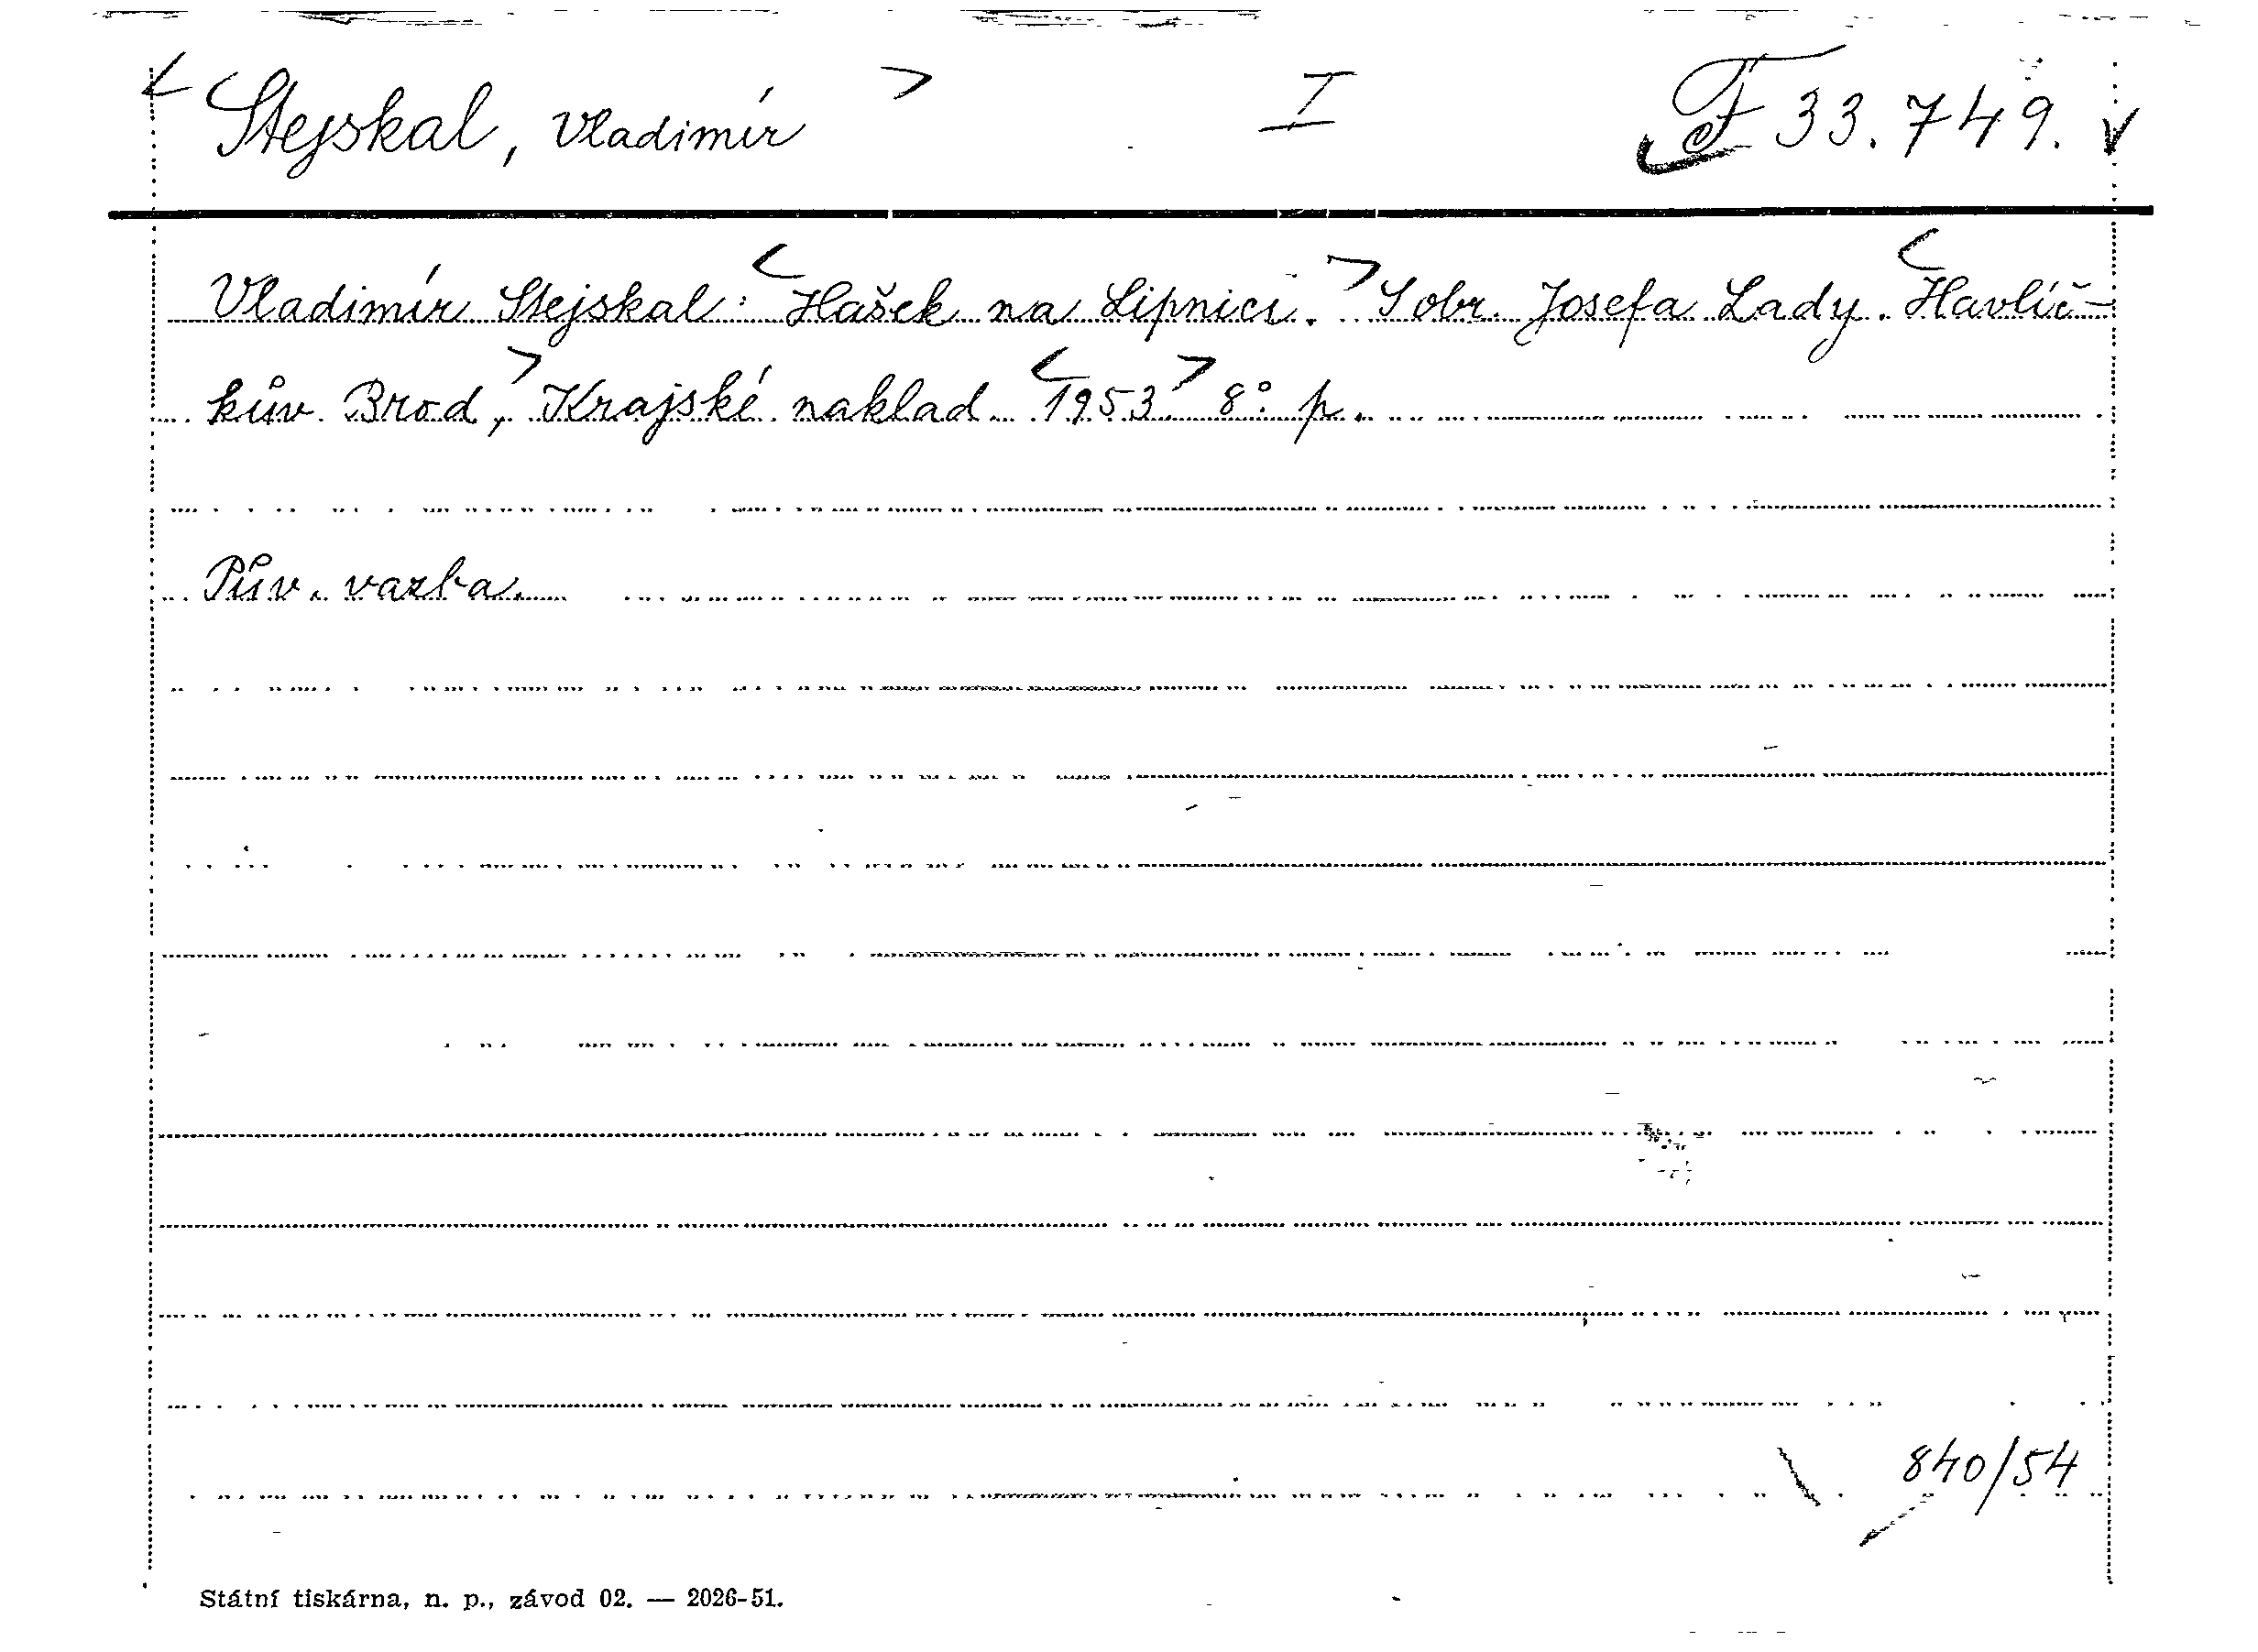 < Stejskal, Vladimír > I F 33.749.
Vladimír Stejskal: <Hašek na Lipnici.> S obr. Josefa Lady. <Havlíč-
kův Brod,> Krajské naklad. <1953.> 8°. p.
Pův. vazba.
840/54
Státní tiskárna, n. p., závod 02. — 2026-51.